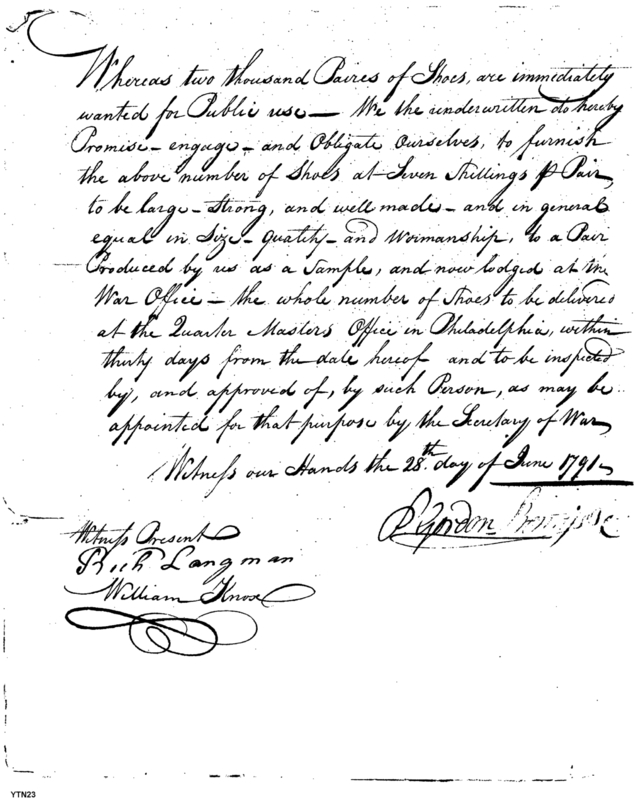 Whereas two thousand Paires of Shoes, are immediately
wanted for Public use — We the underwritten do hereby
Promise - engage - and Obligate Ourselves, to furnish
the above number of Shoes at Seven Shillings ⅌ Pair,
to be large - Strong, and well made - and in general
equal in Size - Quality - and Woimanship, to a Pair
Produced by us as a Sample, and now lodged at the
War Office — the whole number of Shoes to be delivered
at the Quarter Masters Office in Philadelphia, within
thirty days from the date hereof and to be inspected
by, and approved of, by such Person, as may be
appointed for that purpose by the Secretary of War,
Witness our Hands the 28th day of June 1791
Gordon
Witness Present
Rich Langman
William Knox
YTN23